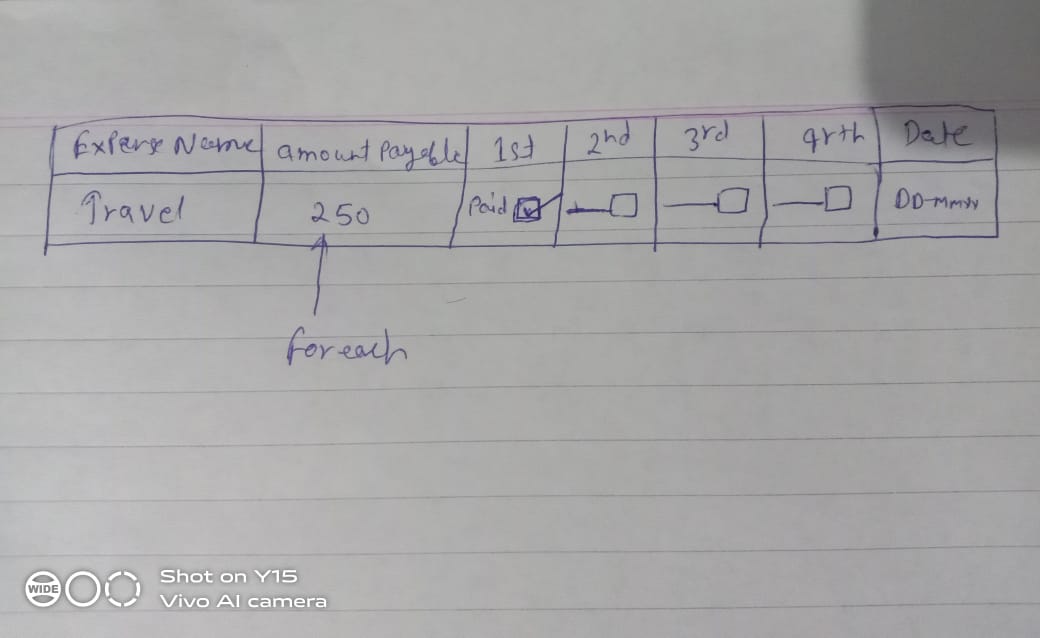 Expense Name amount Payable 1st 2nd 3rd 4rth Date
Travel 250 Paid DD-MMYY
for each
WIDE Shot on Y15
Vivo AI camera